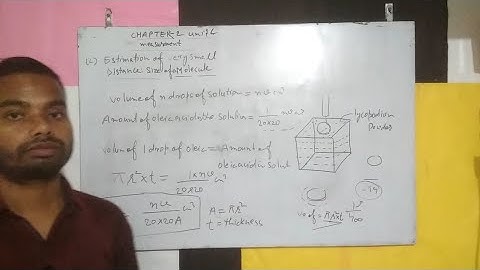 CHAPTER-2 unit &
measurment
Estimation of very small
Distance size of Molecule
volume of n drops of solution = nv
Amount of oleic acid in the solution = 1/20x20 nv
lycopodium
Powder
volume of 1 drop of oleic = Amount of
oleic acid in solut
πr²xt = 1xnv/20x20
nv/20x20A
A = πr²
t = thickness
= πr²xt